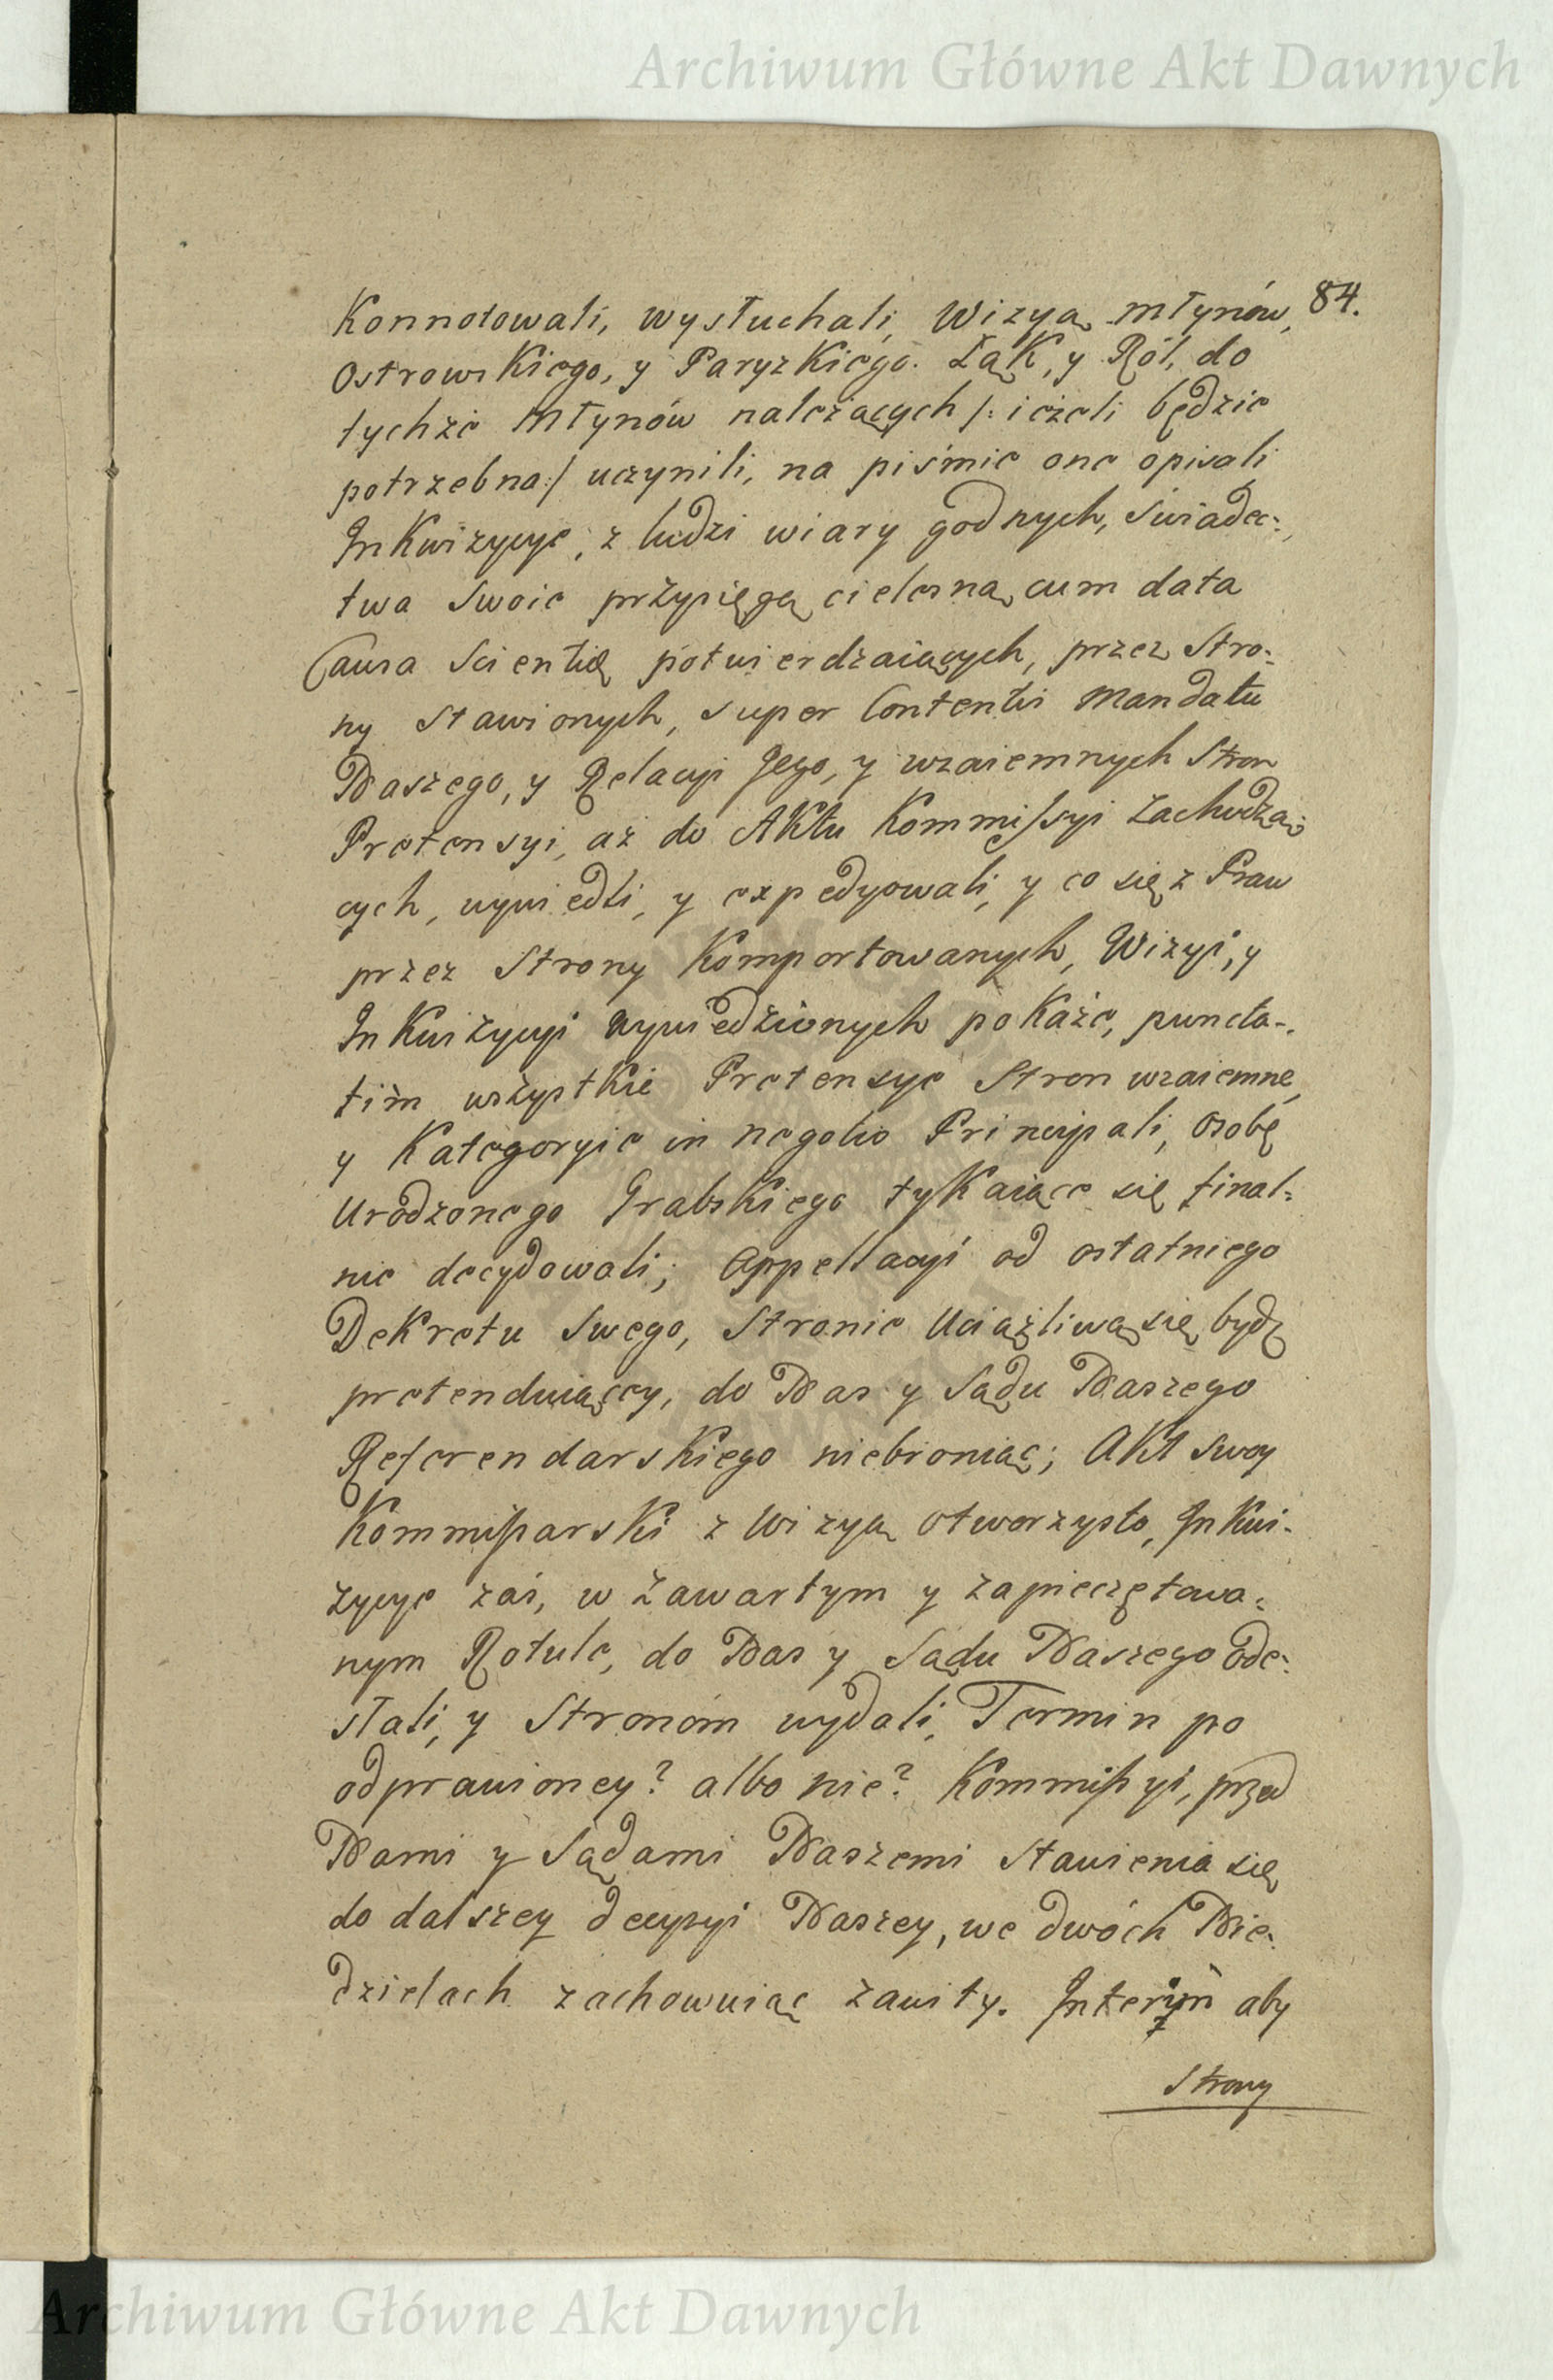 Archiwum Główne Akt Dawnych
84.
Konnotowali, wysłuchali, Wizyą Młynów,
Ostrowskiego, y Paryzkiego. Łąk, y Ról, do
tychże Młynów należących /: ieżeli będzie
potrzebna :/ uczynili, na piśmie one opisali,
Inkwizycye, z ludzi wiary godnych, świadec:
twa swoie przysięgą cielesną, cum data
Causa Scientię potwierdzaiących, przez Stro:
ny Stawionych, super Contentis Mandatu
Naszego, y Relacyi Jego, y wzaiemnych Stron
Pretensyi, aż do Aktu Kommissyi zachodzą:
cych, wywiedli, y expedyowali, y co się z Praw
przez Strony Komportowanych, Wizyi, y
Inkwizycyi wywiedzionych pokaże, puncta-
tim wszystkie Pretensye Stron wzaiemne,
y Kategoryie in negotio Principali, osobę
Urodzonego Grabskiego tykaiące się final:
nie decydowali; Appellacyi od ostatniego
Dekretu Swego, Stronie Uciążliwą się bydź
pretenduiącey, do Nas y Sądu Naszego
Referendarskiego niebroniąc; Akt swoy
Kommissarski z Wizyą otworzysto, Inkwi-
zycye zaś, w zawartym y zapieczętowa:
nym Rotule, do Nas y Sądu Naszego ode:
słali, y Stronóm wydali, Termin po
odprawioney? albo nie? Kommissyi, przed
Nami y Sądami Naszemi stawienia się
do dalszey decyzyi Naszey, we dwóch Nie:
dzielach zachowuiąc zawity. Interim aby
Strony
Archiwum Główne Akt Dawnych